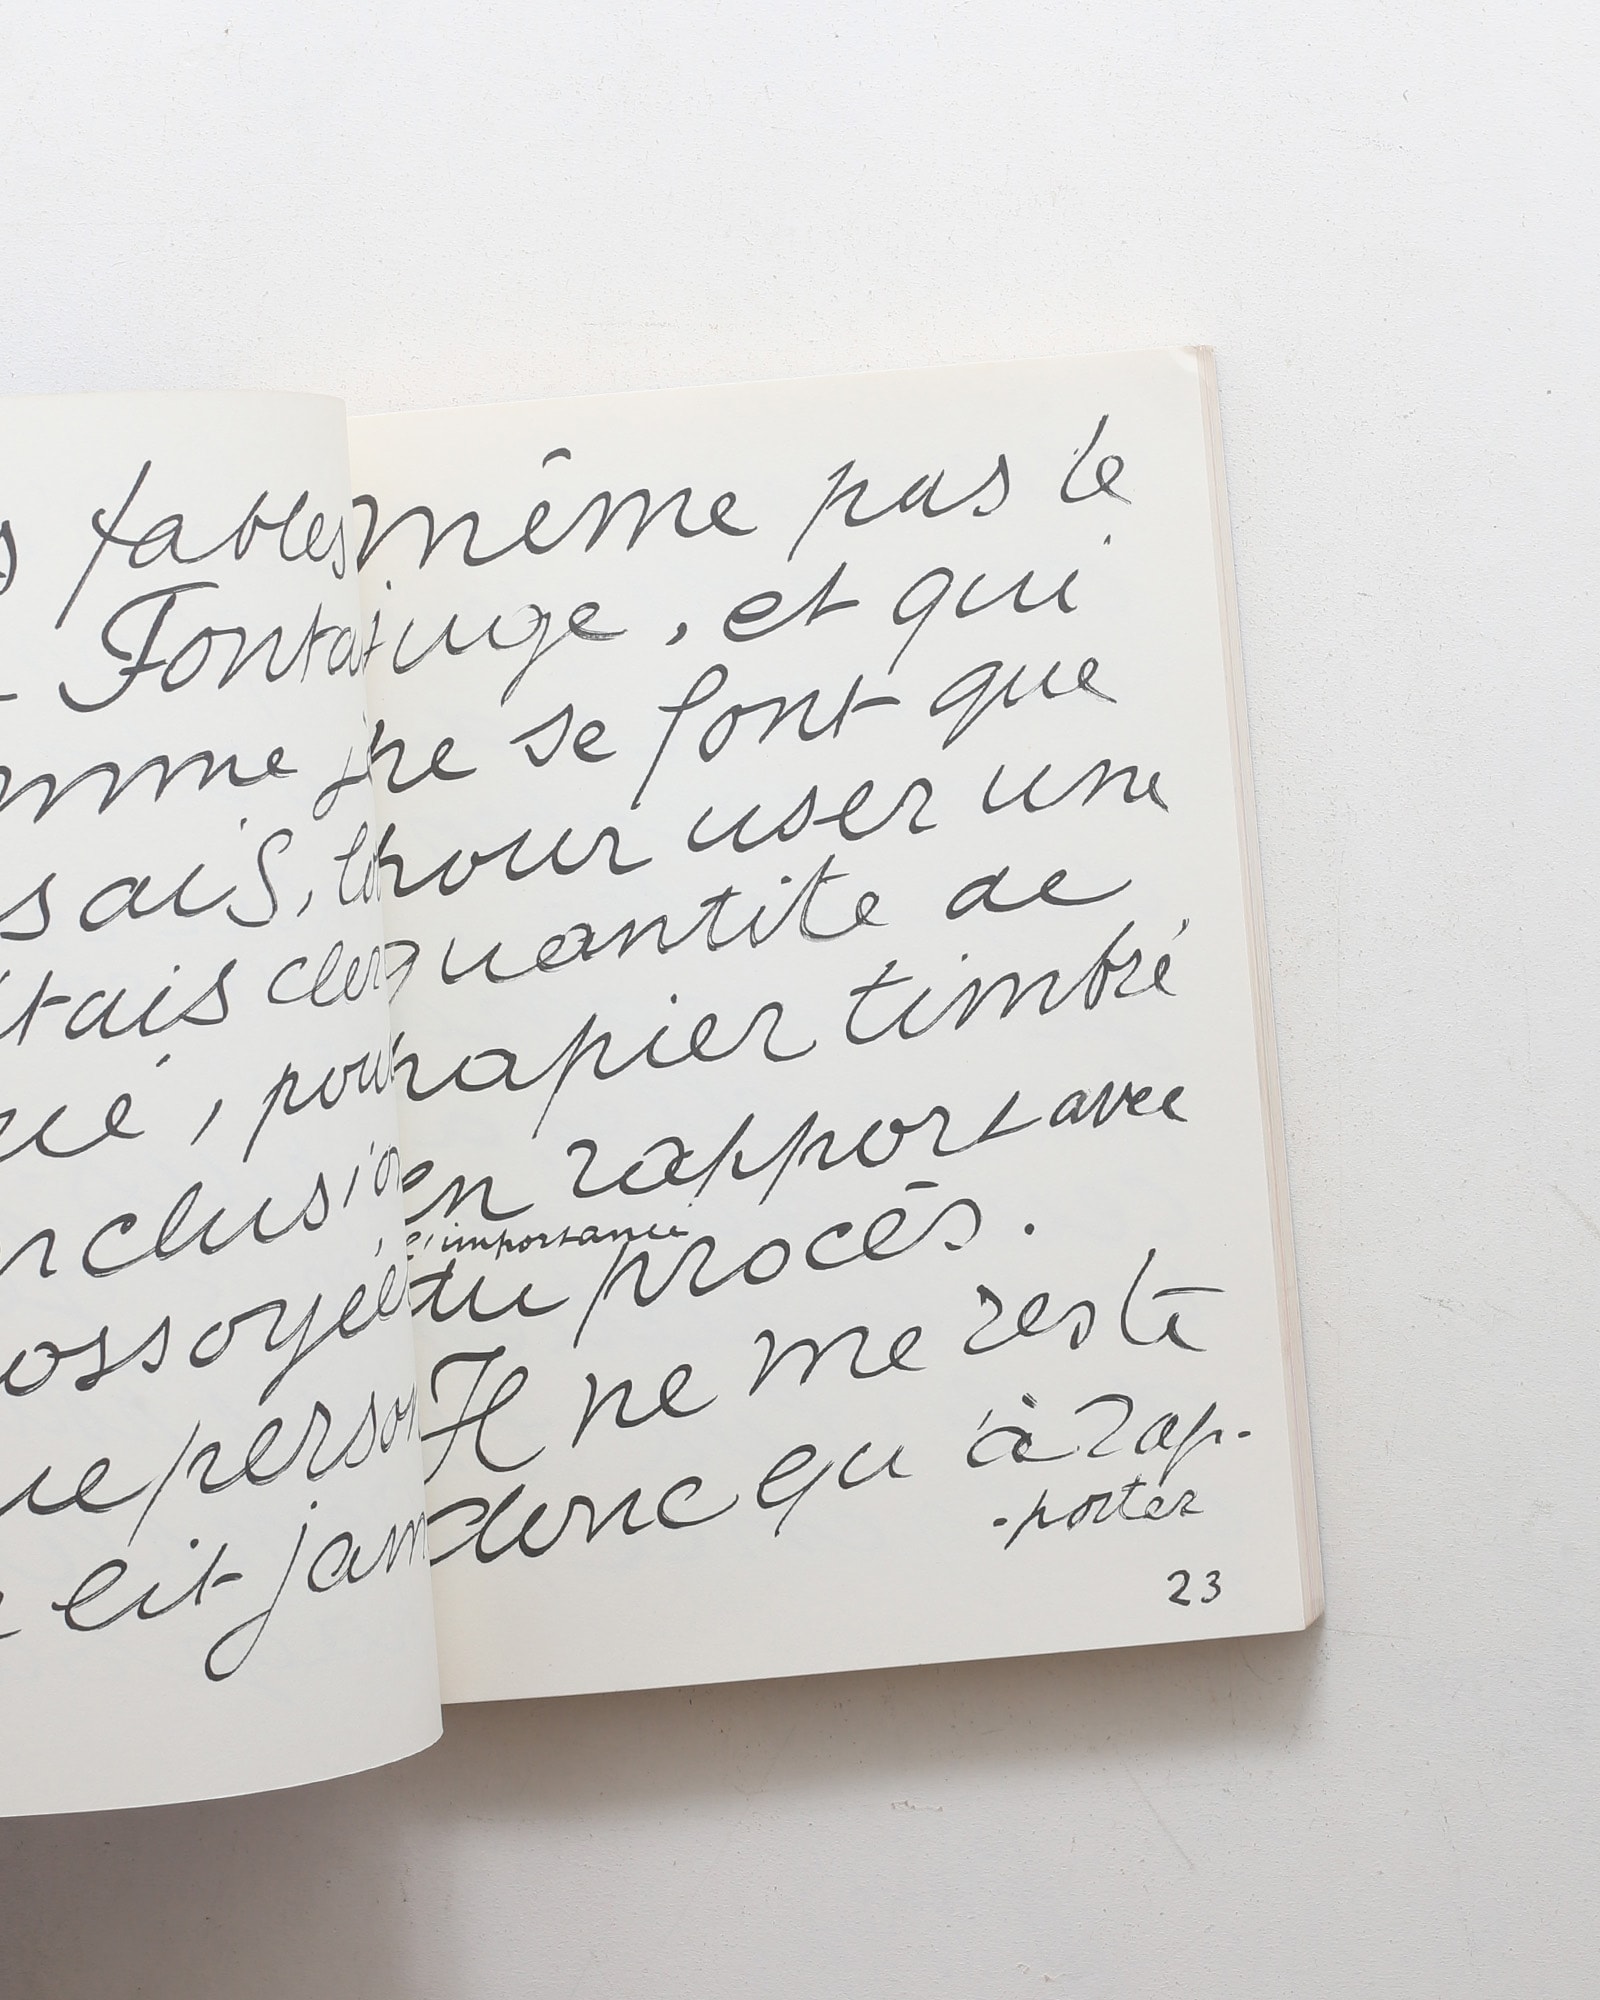 fables
Fonta
mme j
sais,
tais
pour
nclusion
ossoyeu
ue person
eit jam
même pas le
juge, et qui
ne se font que
pour user une
quantité de
papier timbré
en rapport avec
l'importance
du procès.
Il ne me reste
donc qu'à rap-
-porter
23